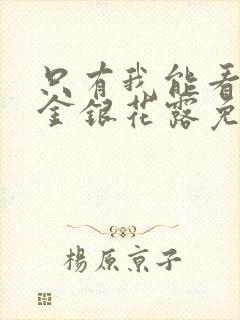 只有我能看
金銀花露免
楊原京子